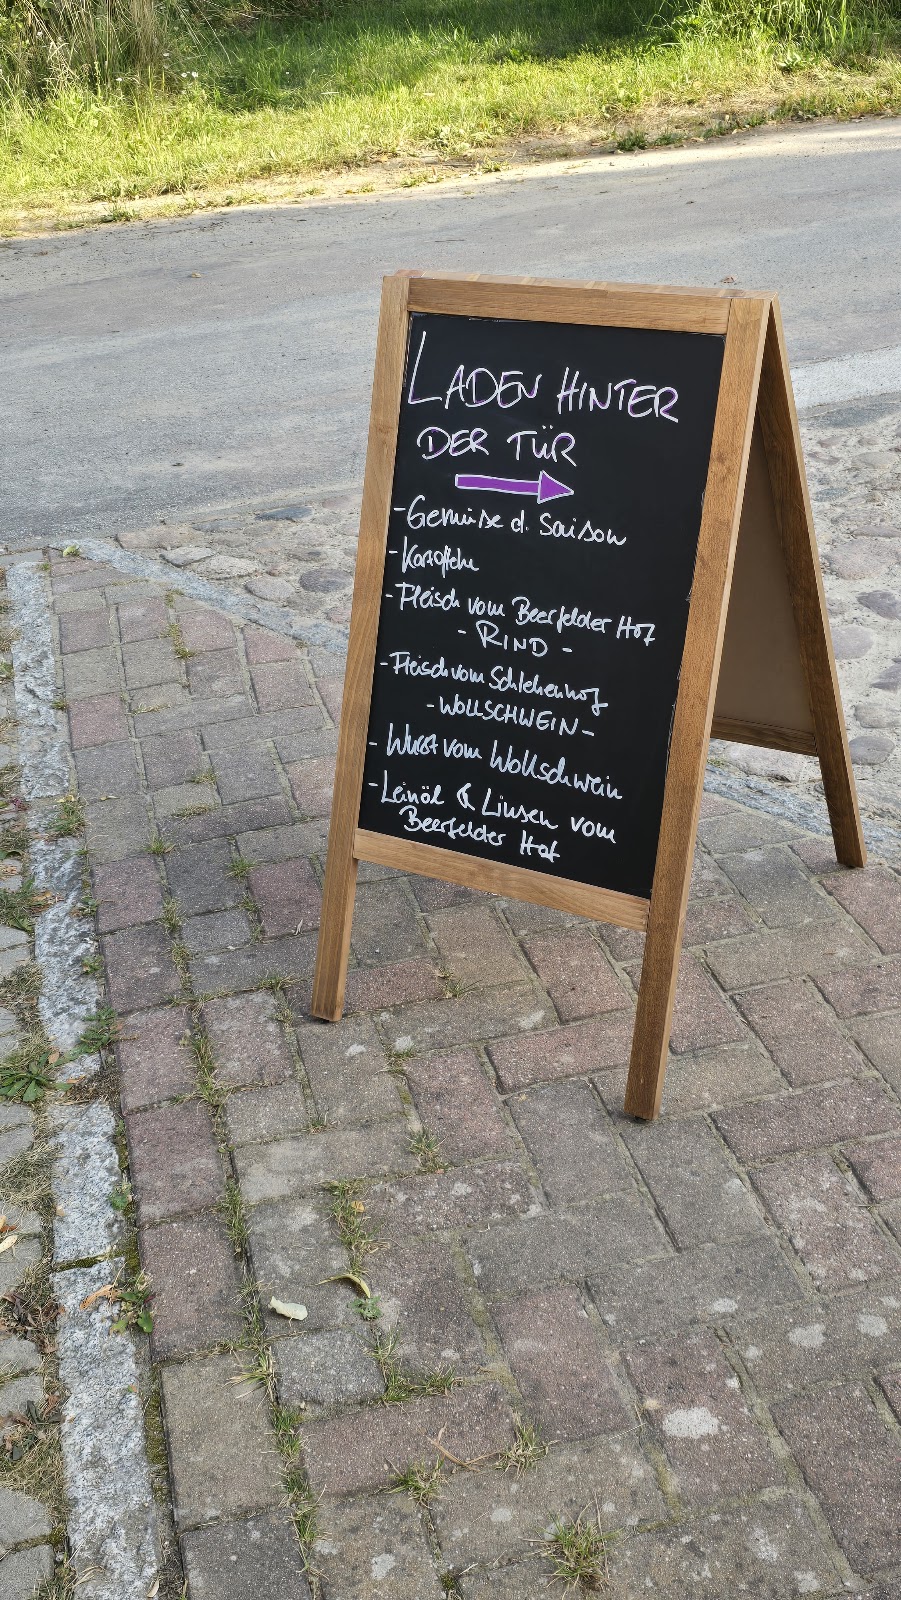 LADEN HINTER
DER TÜR
- Gemüse d. Saison
- Kartoffeln
- Fleisch vom Beerfelder Hof
- RIND -
- Fleisch vom Schlehenhof
- WOLLSCHWEIN -
- Wurst vom Wollschwein
- Leinöl & Linsen vom
Beerfelder Hof